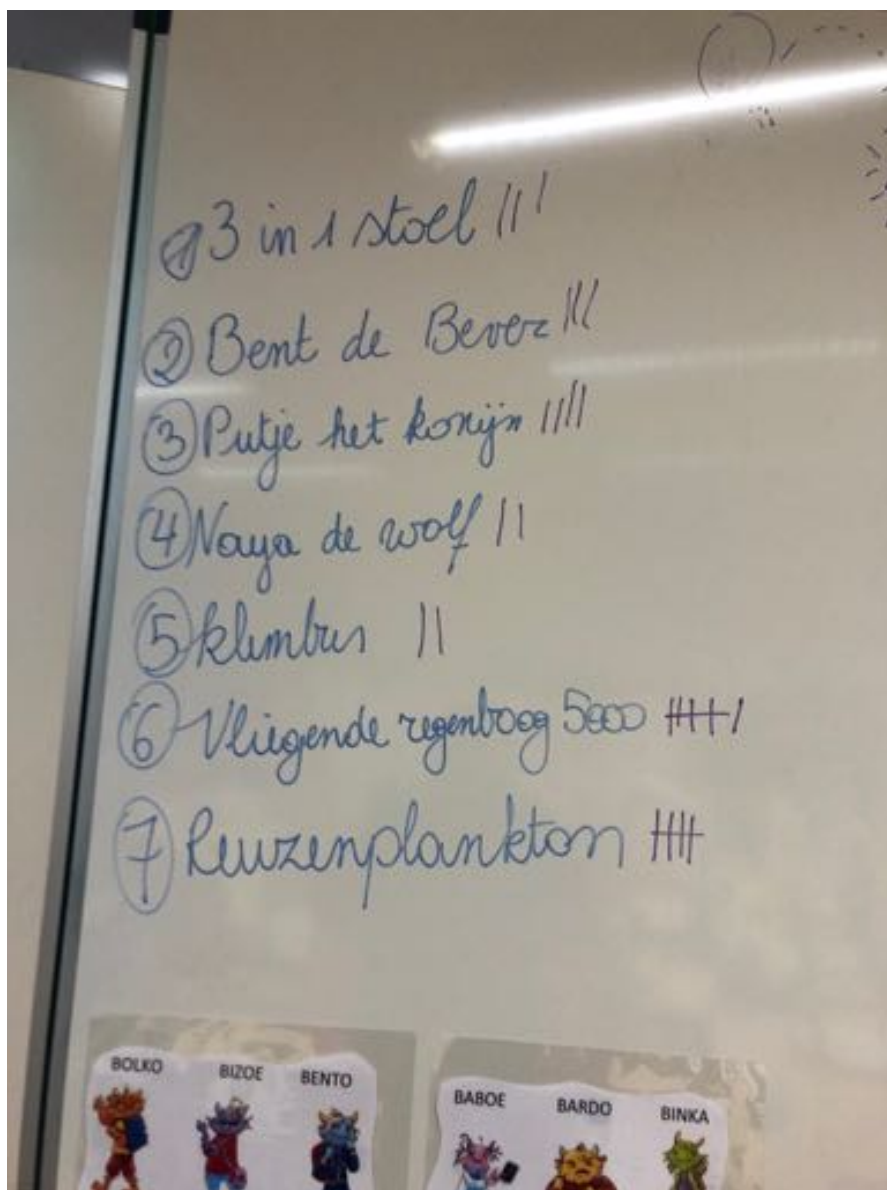 1 3 in 1 stoel |||
2 Bent de Bever |||
3 Putje het konijn ||||
4 Naya de wolf ||
5 klimbus ||
6 Vliegende regenboog 5000 |||| |
7 Reuzenplankton ||||
BOLKO BIZOE BENTO
BABOE BARDO BINKA